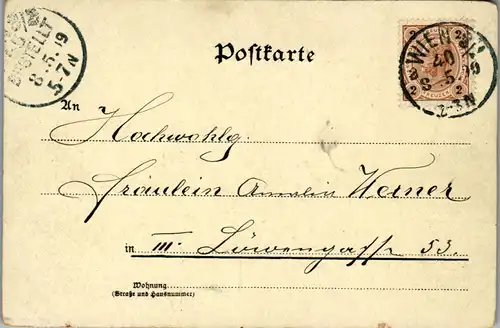 BESTELLT
8. 5. 99
5-7N
Postkarte
2 2
KREUZER
2 2
WIEN
40
8 5 99
2-3N
An
Hochwohlg
Fräulein Werner
in III. Löwengasse 53.
Wohnung
(Straße und Hausnummer)